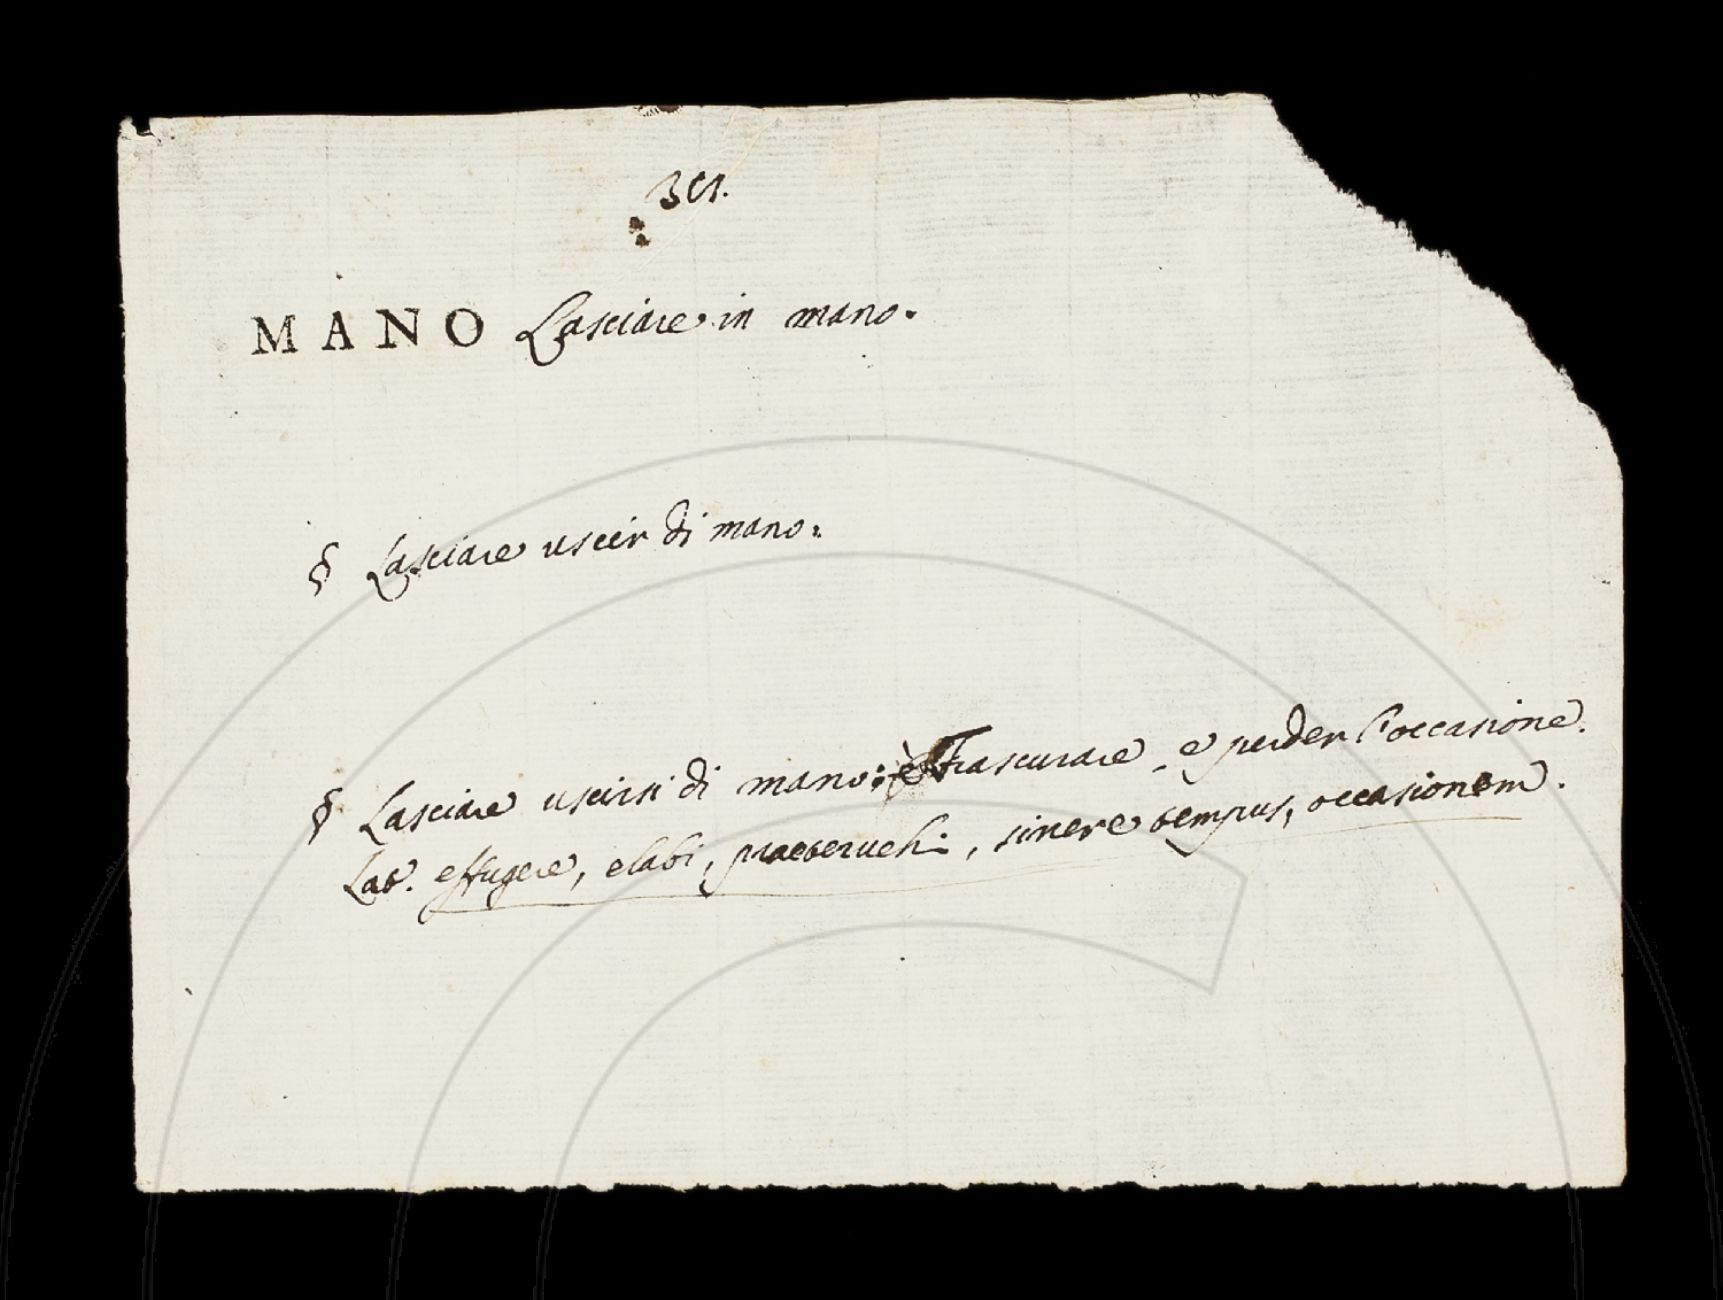 MANO Lasciare in mano.
§ Lasciare uscir di mano.
§ Lasciare uscirsi di mano: è Trascurare, e perder l'occasione.
Lat. effugere, elabi, praetervehi, sinere tempus, occasionem.